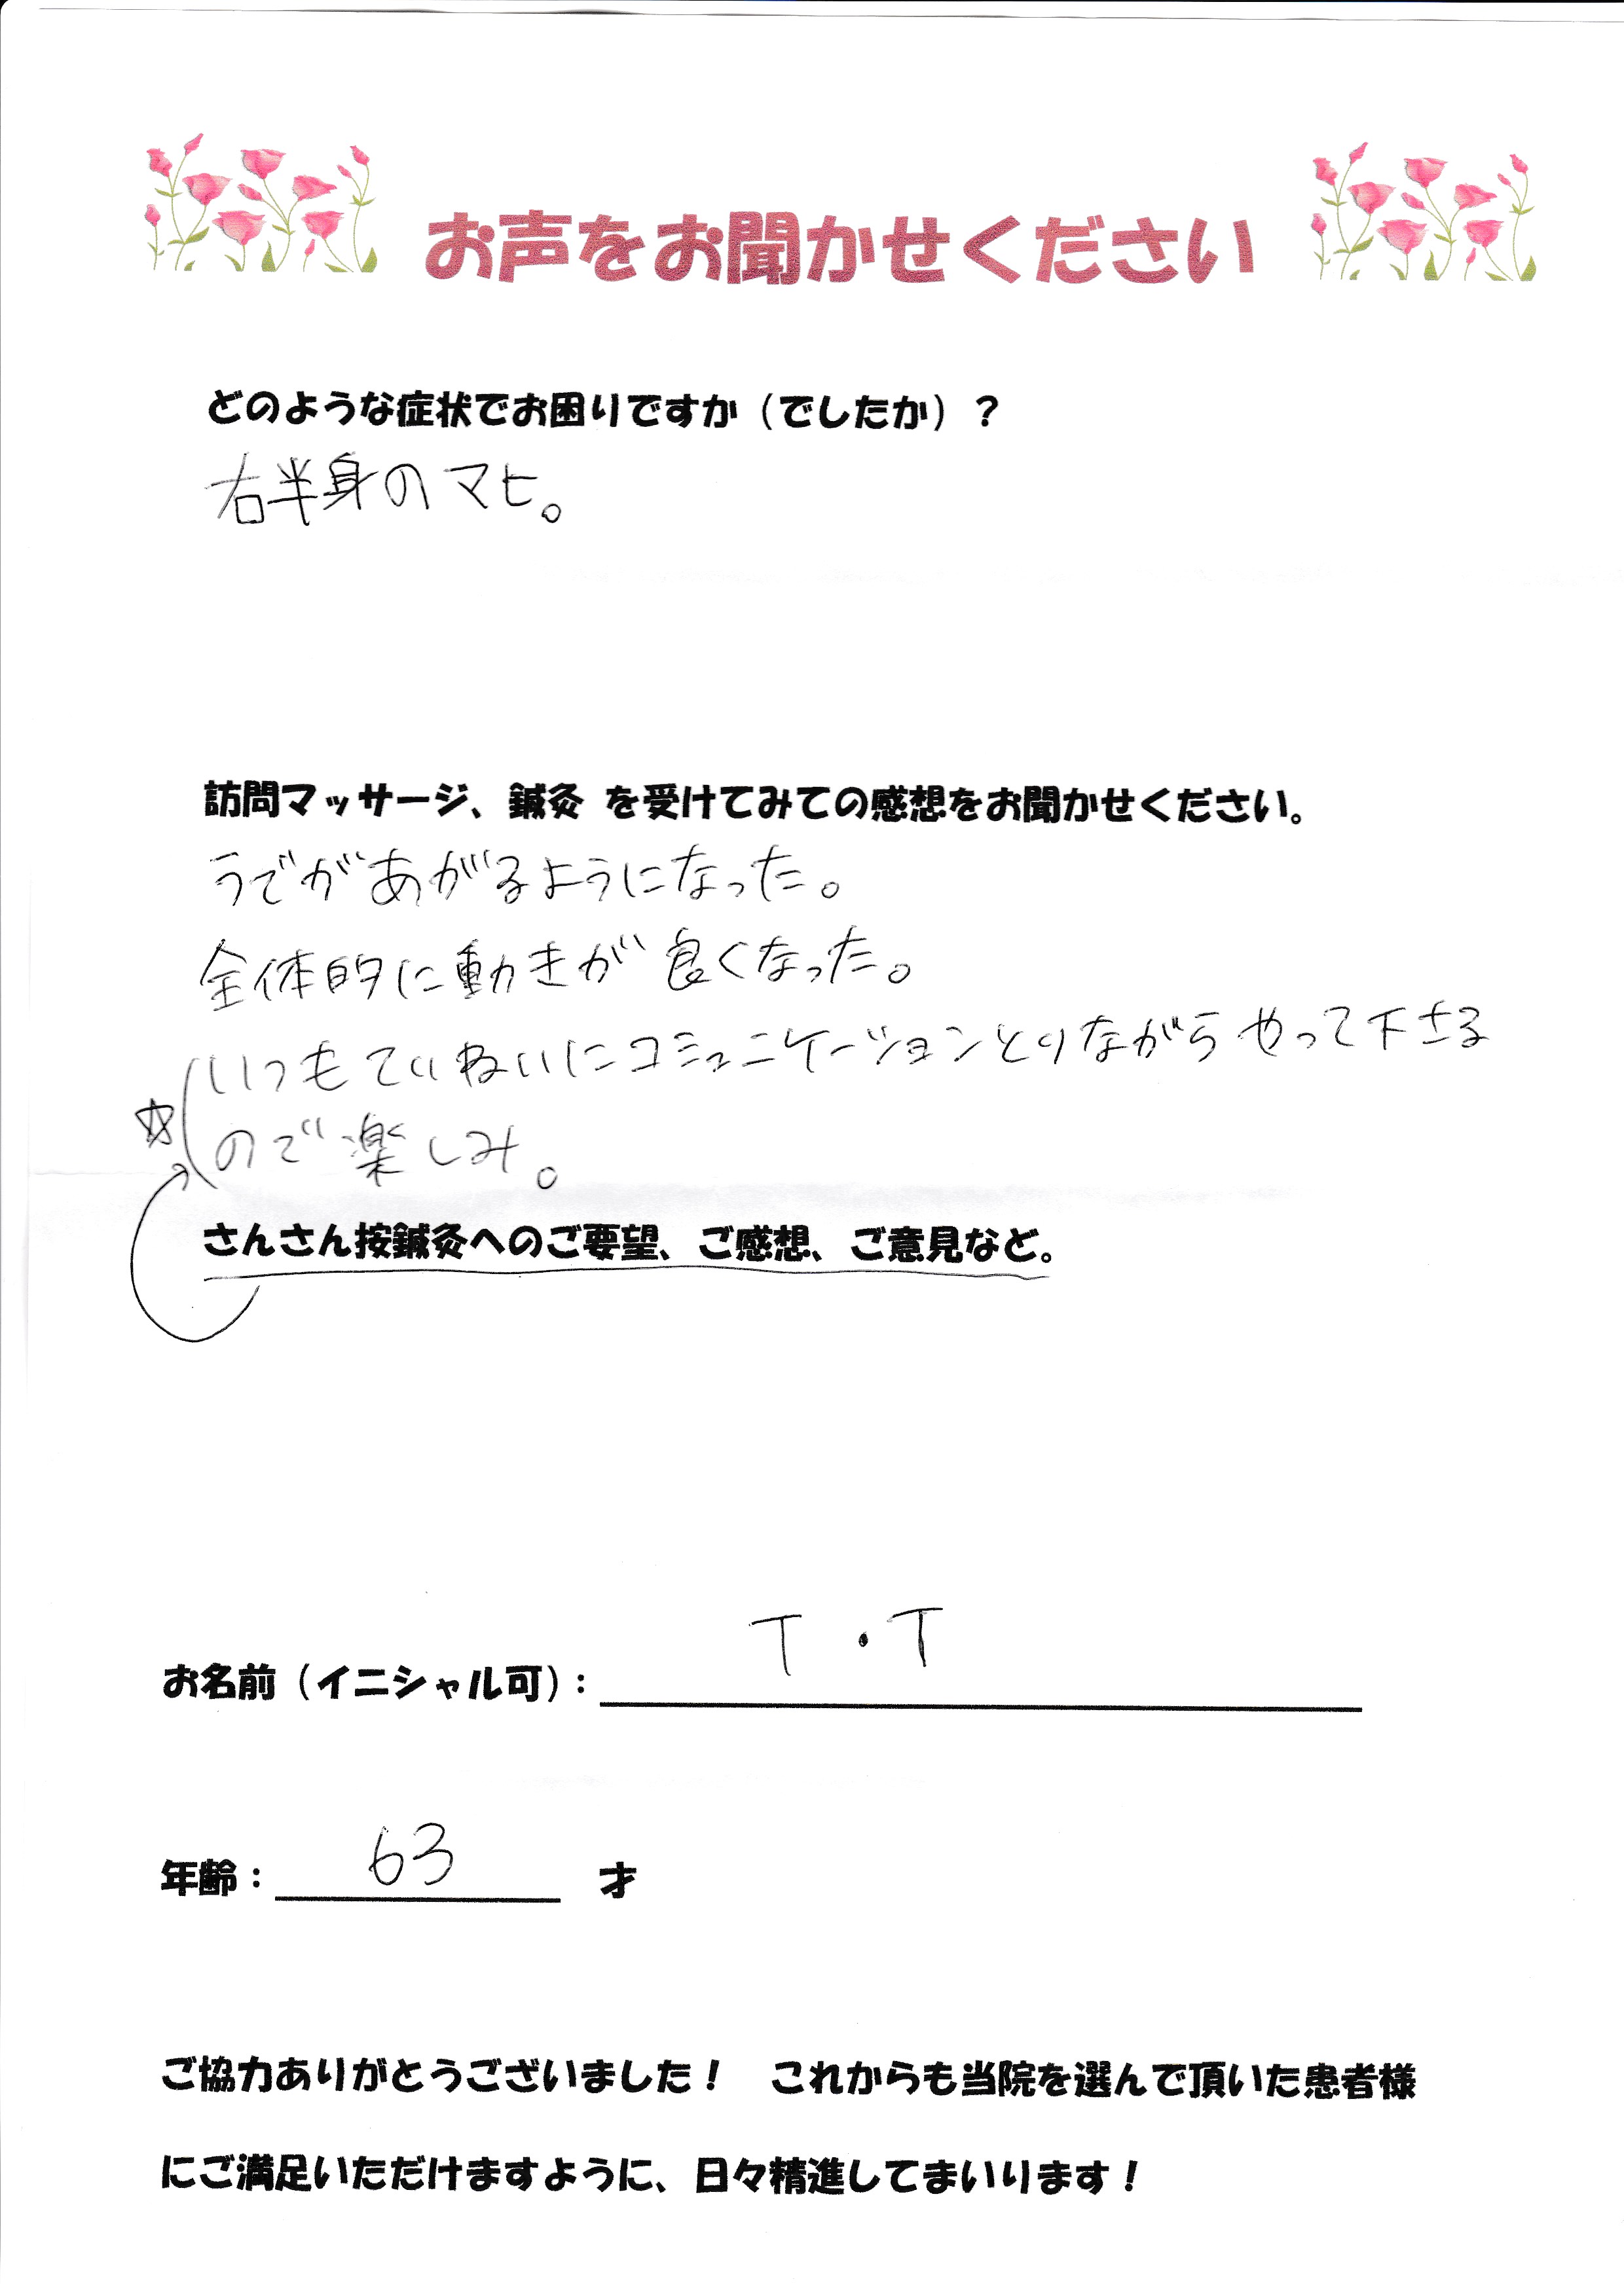 お声をお聞かせください
どのような症状でお困りですか（でしたか）？
右半身のマヒ。
訪問マッサージ、鍼灸 を受けてみての感想をお聞かせください。
うでがあがるようになった。
全体的に動きが良くなった。
いつもていねいにコミュニケーションとりながらやって下さる
☆ ので楽しみ。
さんさん按鍼灸へのご要望、ご感想、ご意見など。
お名前（イニシャル可）： T・T
年齢： 63 才
ご協力ありがとうございました！　これからも当院を選んで頂いた患者様
にご満足いただけますように、日々精進してまいります！